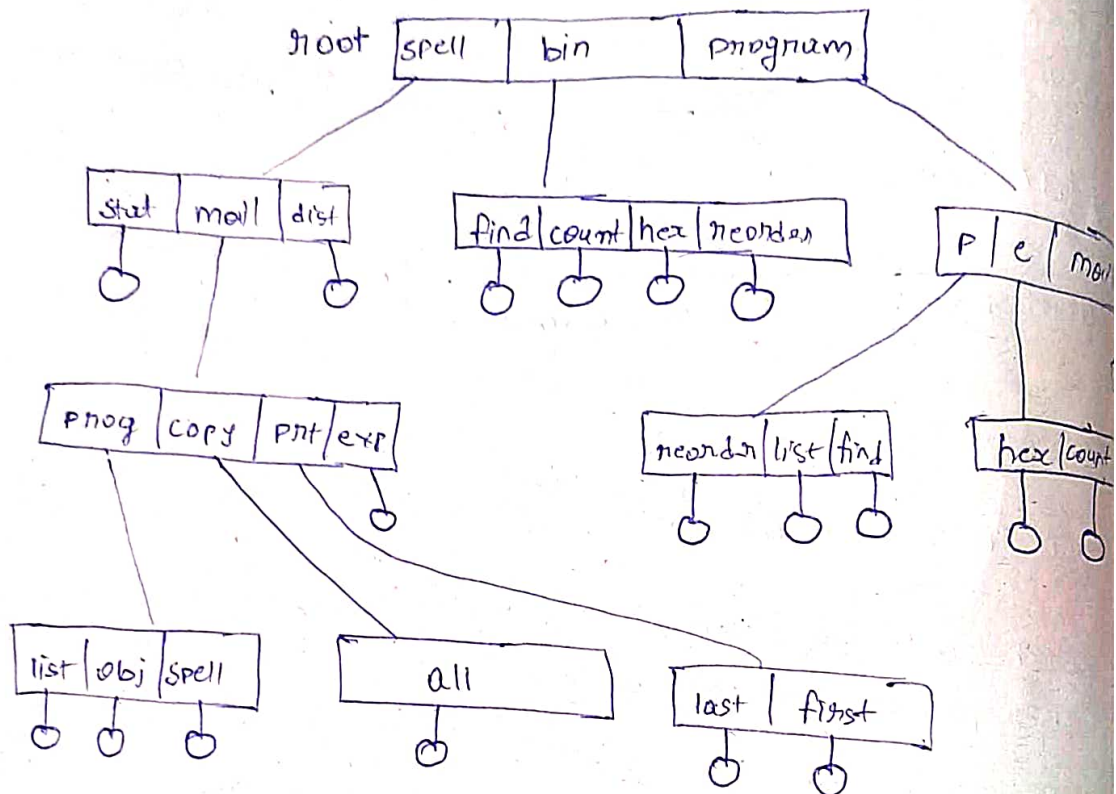 root spell bin program
stat mail dist
find count hex reorder
p e mail
prog copy prt exp
reorder list find
hex count
list obj spell
all
last first